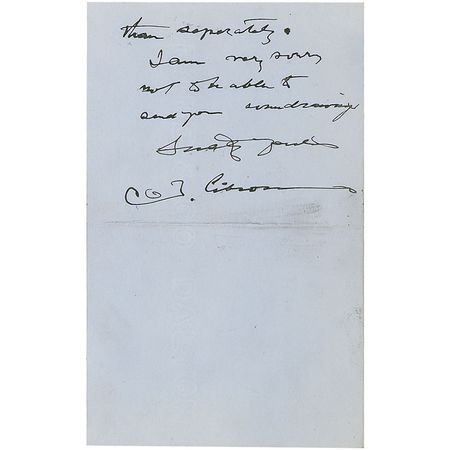 than seperately.
I am very sorry
not to be able to
send you some drawings
Truly Yours
C D. Gibson